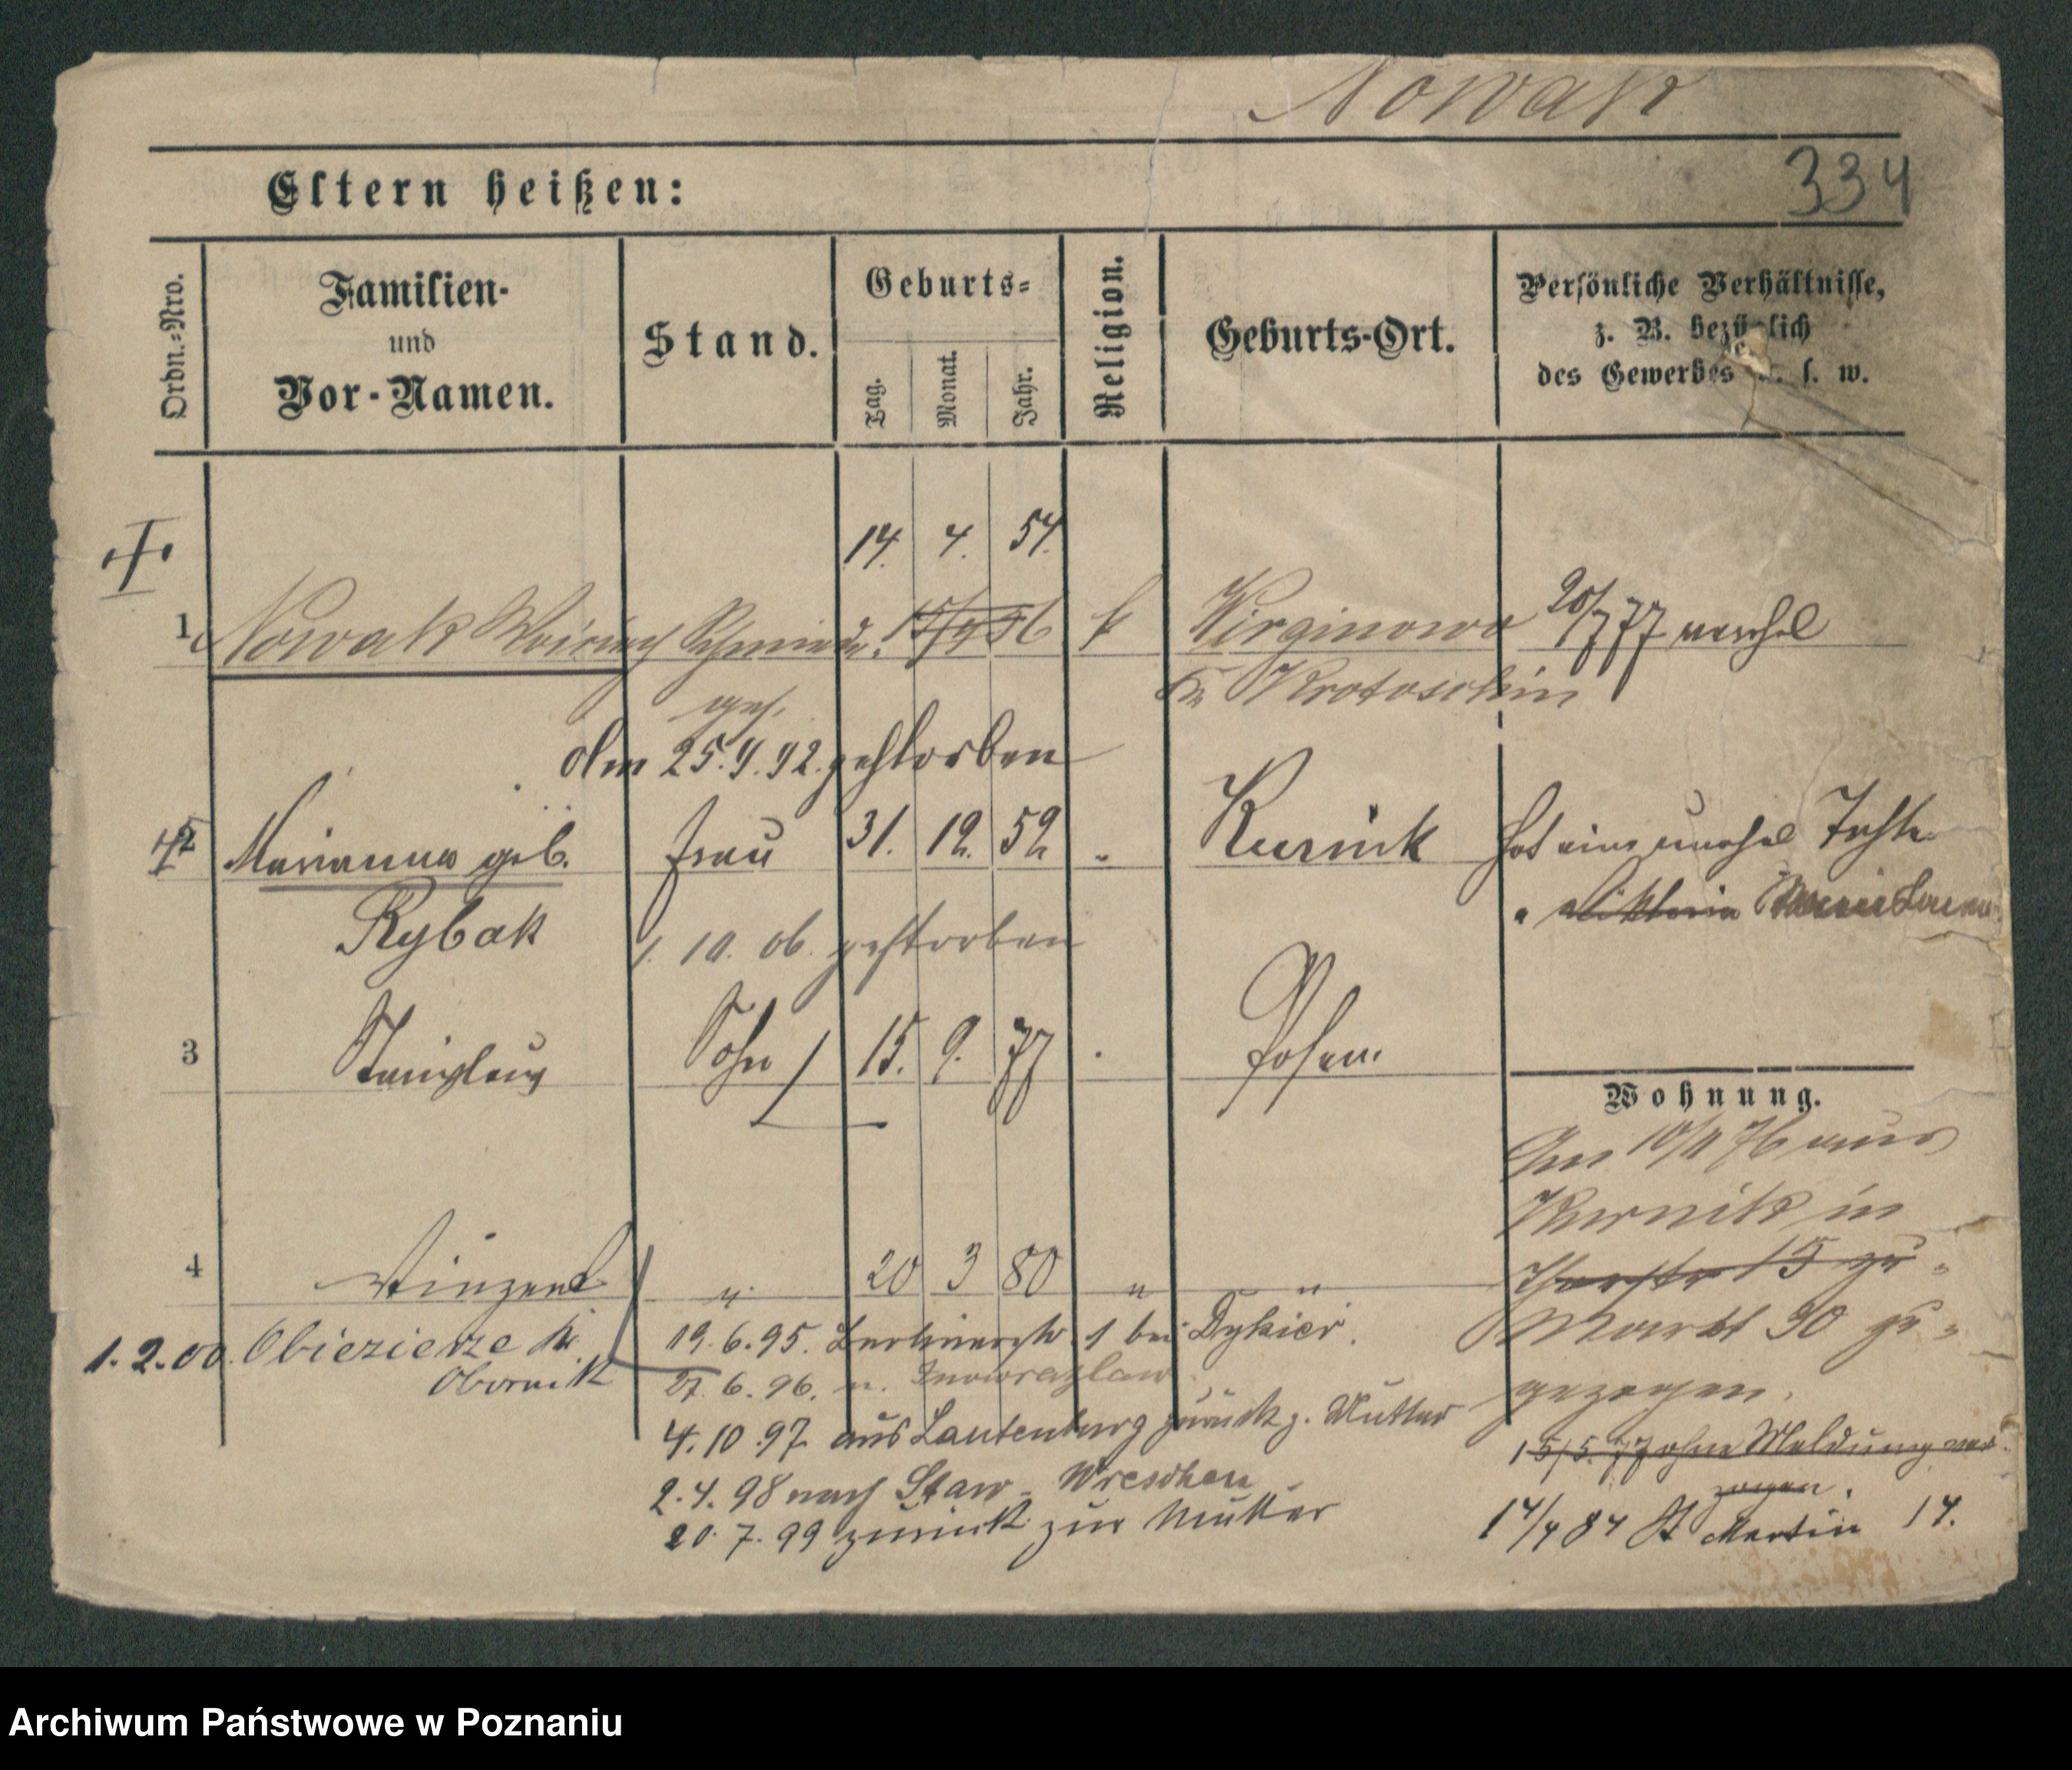 Nowak
334
Eltern heißen:
Ordn.-Nro.
Familien-
und
Vor-Namen.
Stand.
Geburts-
Tag.
Monat.
Jahr.
Religion.
Geburts-Ort.
Persönliche Verhältnisse,
z. B. bezüglich
des Gewerbes u. s. w.
14. 4. 54.
1 Nowak Schmied 56 k 20/7 77
Kr Krotoschin
gestorben
2 Marianna geb. Frau 31. 12. 52 " Kurnik Hat eine
Rybak
1. 10. 06. gestorben
3 Stanislaus Sohn 15. 9. 77 Posen.
Wohnung.
Am 76 aus
Kurnik in
4 Vinzent " 20 3 80 " "
15
Markt 90
gezogen.
1.2.00. Obiezierze Kr.
Obornik
19. 6. 95. 1 bei
27. 6. 96. n. Inowrazlaw
4. 10. 97. aus Lautenburg zurück z. Mutter
2. 4. 98 nach Staw - Wreschen
20. 7. 99 zurück zur Mutter
15/5. 77 ohne Meldung ver-
zogen.
14/4 84 St Martin 14.
Archiwum Państwowe w Poznaniu